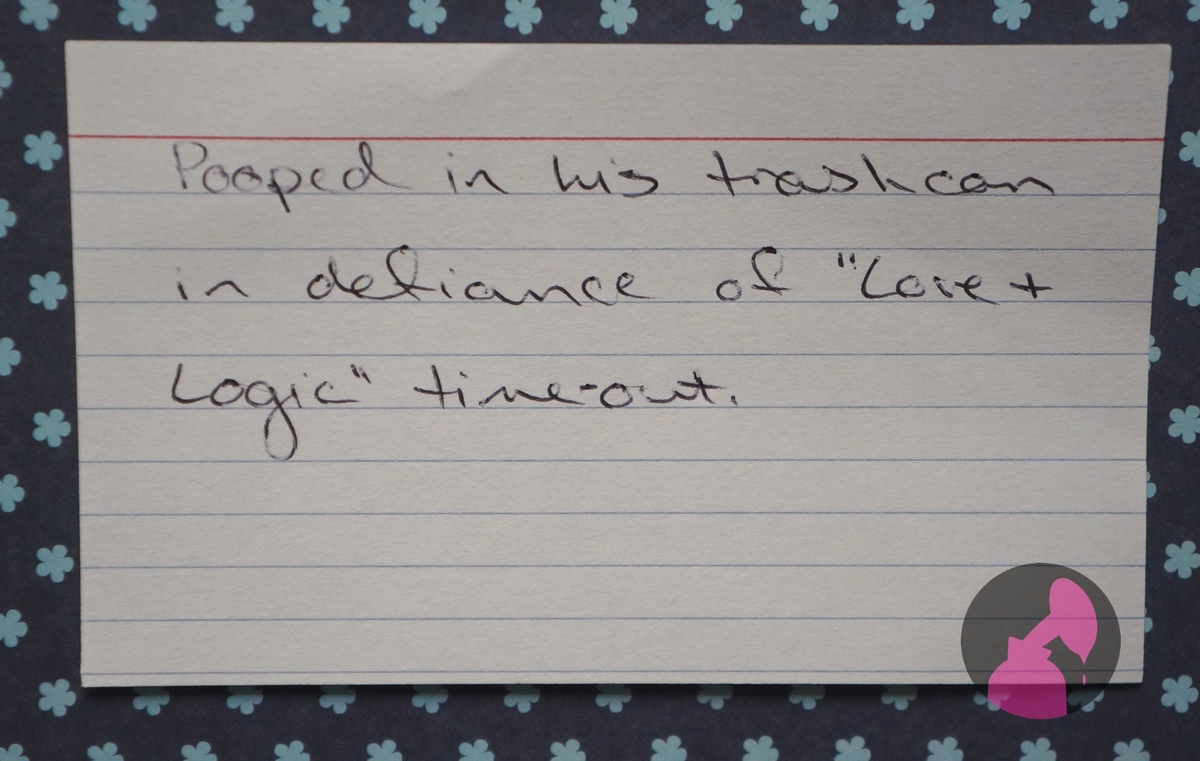 Pooped in his trashcan
in defiance of "Love +
Logic" time-out.